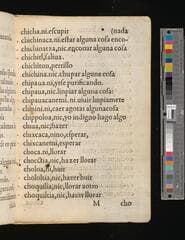 chicha.ni.escupir (nada
chichinaca.ni.estar alguna cosa enco-
chichinatza,nic.encontar alguna cosa
chichitl,saliua.
chichiton,perrillo
chichina.nic.chupar alguna cosa
chipaua,ni,yrse purificando.
chipaua,nic.limpiar alguna cosa
chipauacanemi.ni.uiuir limpiamete
chipini,ni,caer agotas alguna cosa
chippoloa,nic,yo indigno hago algo
chiua,nic,hazer
chixcaca,nino,esperar,
chixcanemi,esperar
choca,ni,llorar
choctia,nic,hazer llorar
choloa,ni,huir
chololtia,nic,hazer huir
choquilia,nic,llorar aotro
choquiltia,nic,hazer llorar.
M cho